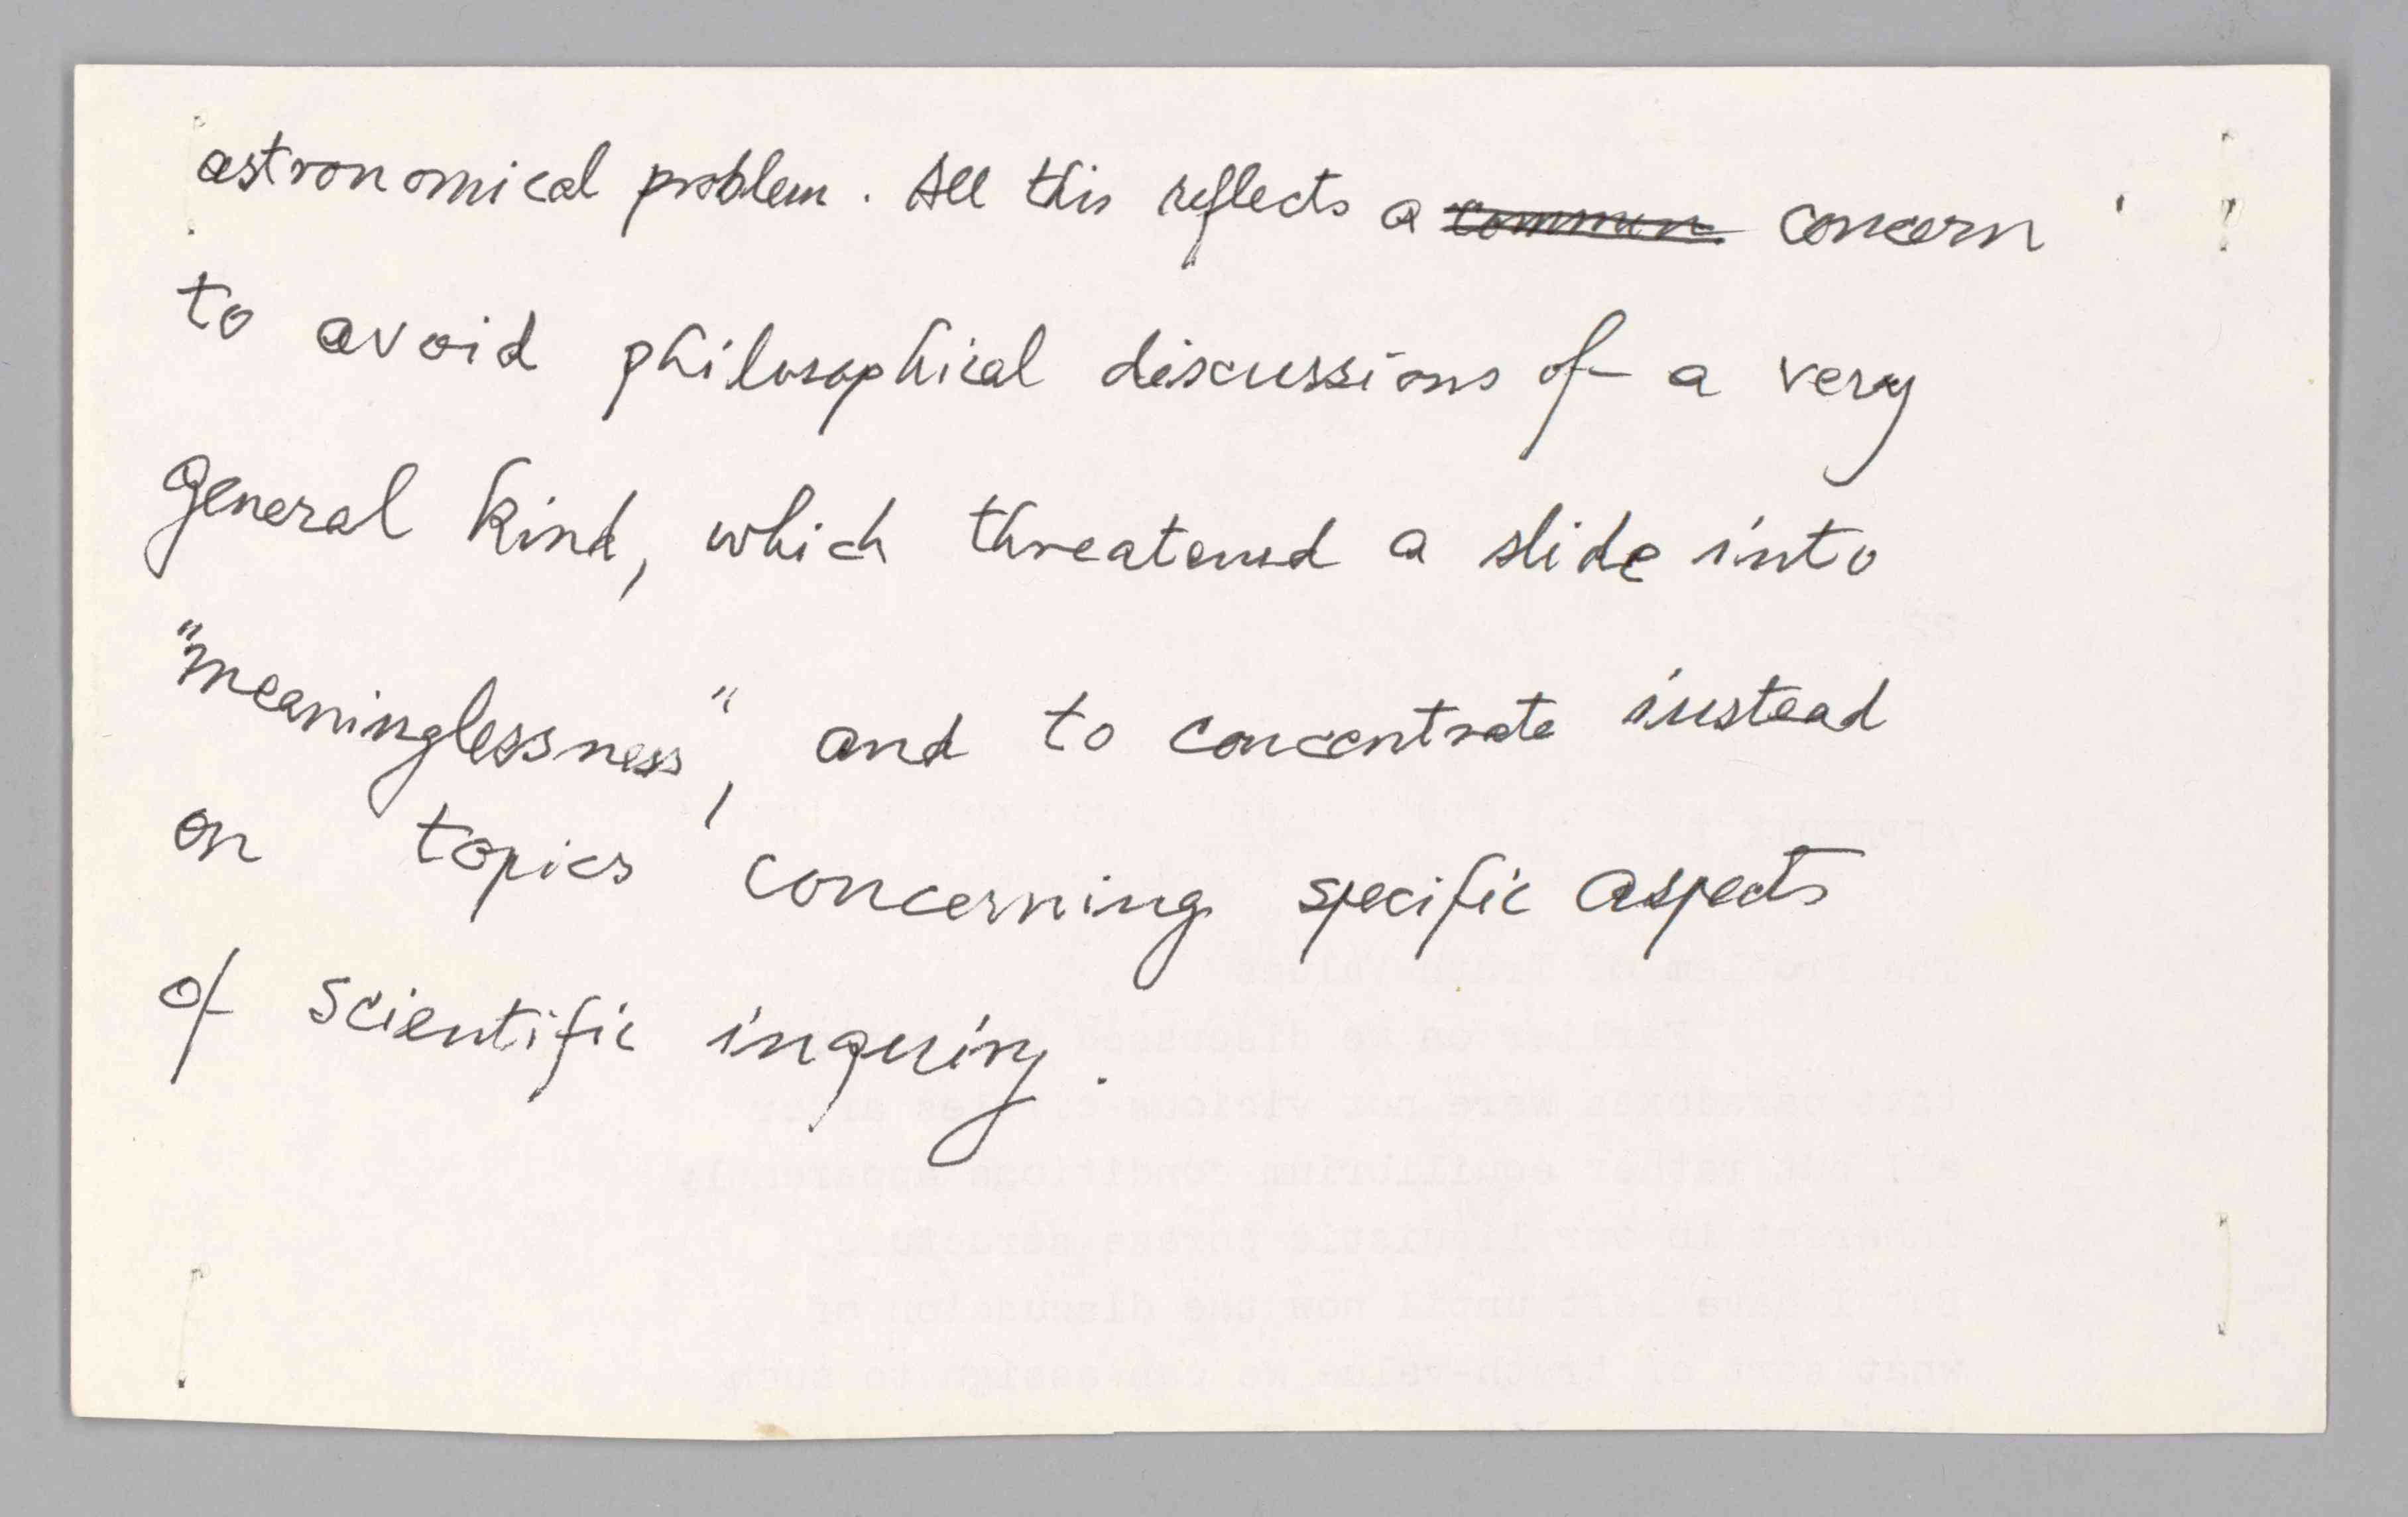 astronomical problem. All this reflects a common concern
to avoid philosophical discussions of a very
general kind, which threatened a slide into
"meaninglessness", and to concentrate instead
on topics concerning specific aspects
of scientific inquiry.